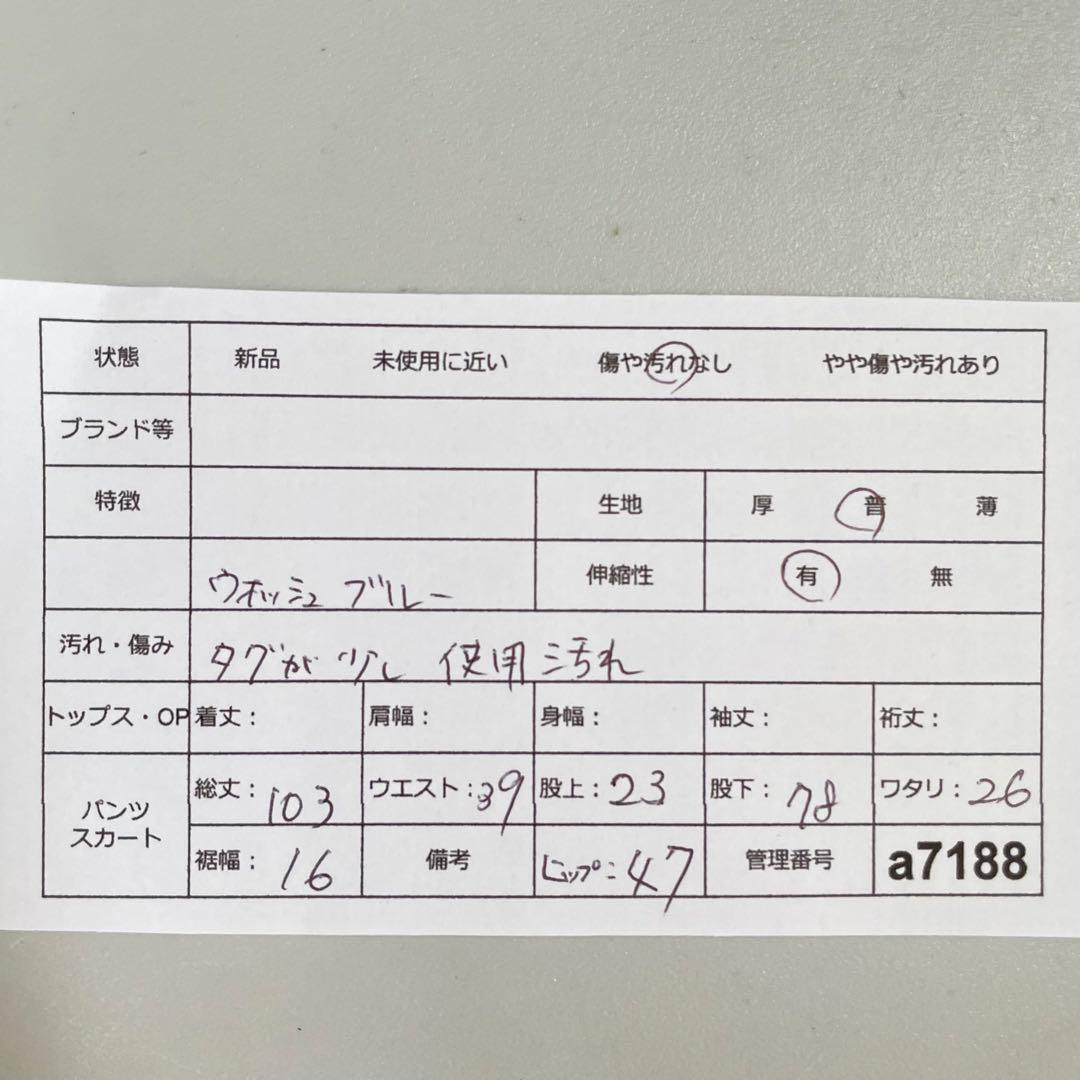 状態 新品 未使用に近い 傷や汚れなし やや傷や汚れあり
ブランド等
特徴 生地 厚 普 薄
ウオッシュ ブルー 伸縮性 有 無
汚れ・傷み タグが少し 使用汚れ
トップス・OP 着丈： 肩幅： 身幅： 袖丈： 裄丈：
パンツ スカート 総丈：103 ウエスト：39 股上：23 股下：78 ワタリ：26
裾幅：16 備考 ヒップ：47 管理番号 a7188